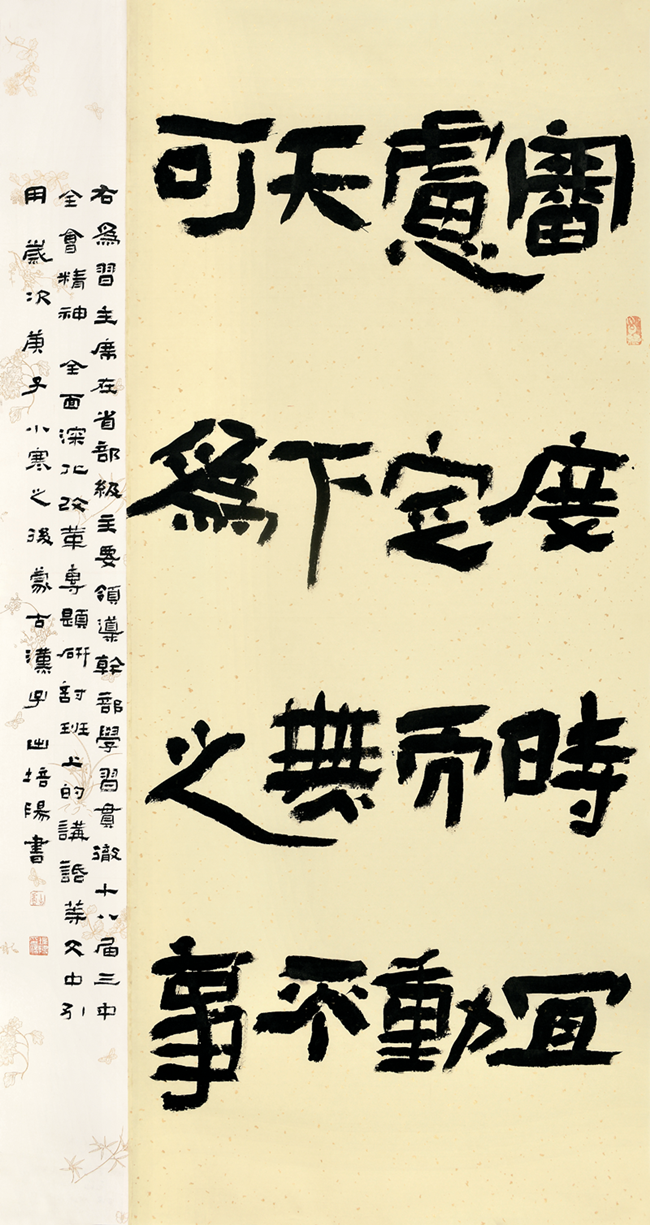 審度時宜
慮定而動
天下無不
可爲之事
右爲習主席在省部級主要領導幹部學習貫徹十八届三中
全會精神 全面深化改革專題研討班上的講話等文中引
用 歲次庚子小寒之後蒙古漢子培陽書